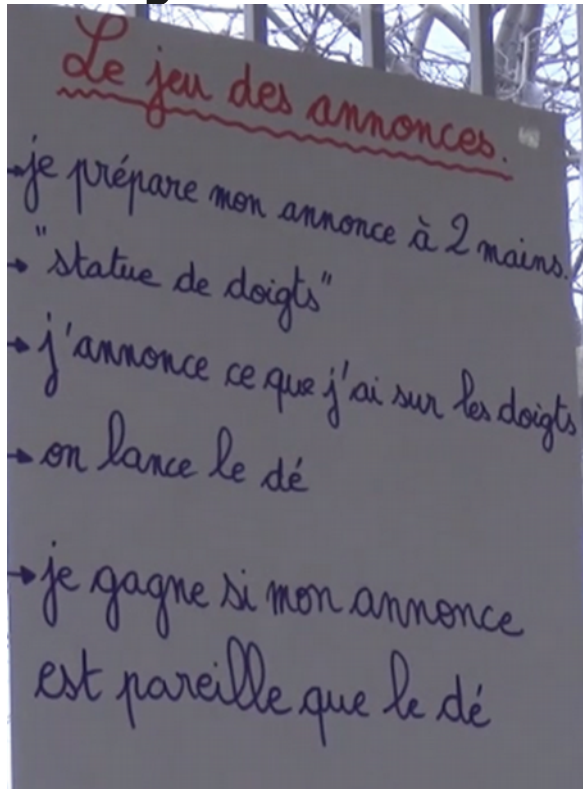 Le jeu des annonces.
→ je prépare mon annonce à 2 mains.
→ "statue de doigts"
→ j'annonce ce que j'ai sur les doigts
→ on lance le dé
→ je gagne si mon annonce
est pareille que le dé